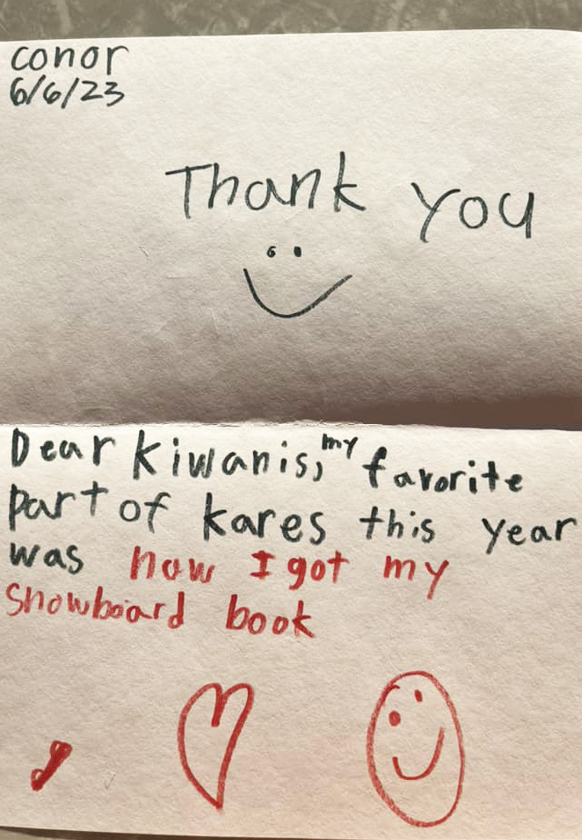 conor
6/6/23
Thank you
Dear Kiwanis, my favorite
part of kares this year
was how I got my
snowboard book